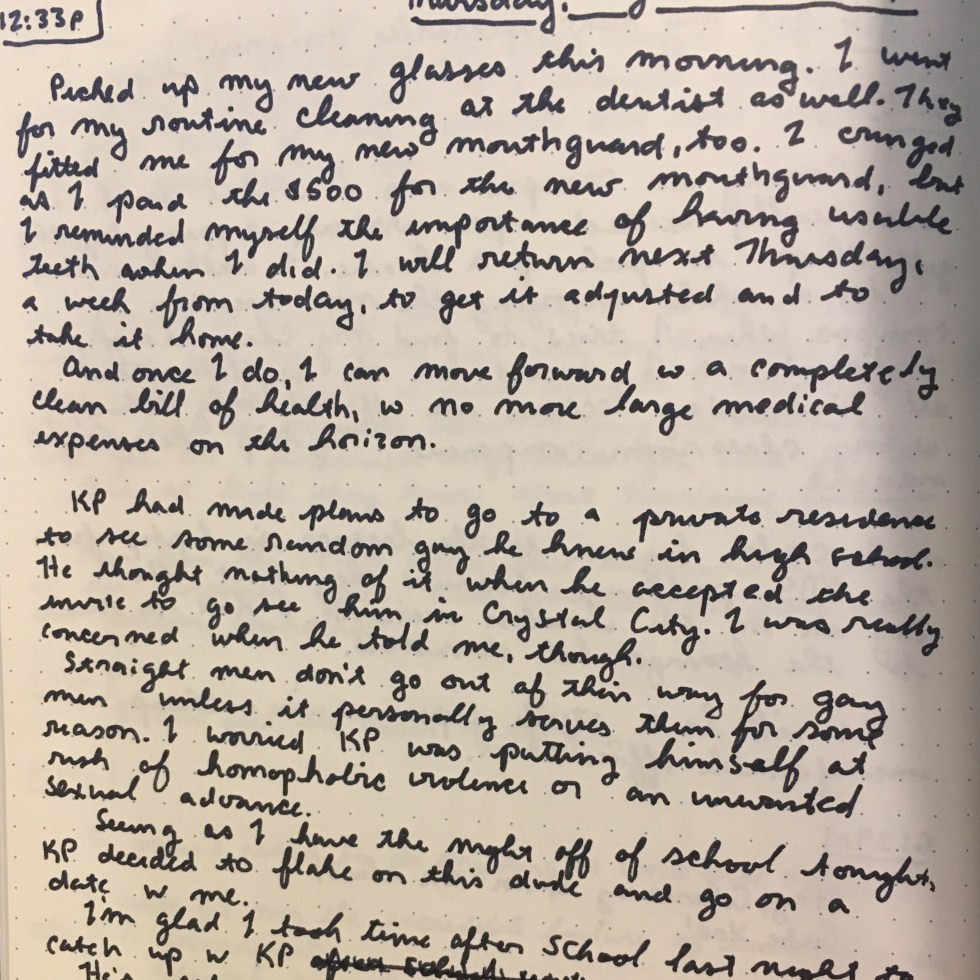 12:33P
Thursday,
Picked up my new glasses this morning. I went
for my routine cleaning at the dentist as well. They
fitted me for my new mouthguard, too. I cringed
as I paid the $500 for the new mouthguard, but
I reminded myself the importance of having usable
teeth when I did. I will return next Thursday,
a week from today, to get it adjusted and to
take it home.
And once I do, I can move forward w a completely
clean bill of health, w no more large medical
expenses on the horizon.
KP had made plans to go to a private residence
to see some random guy he knew in high school.
He thought nothing of it when he accepted the
invite to go see him in Crystal City. I was really
concerned when he told me, though.
Straight men don't go out of their way for gay
men unless it personally serves them for some
reason. I worried KP was putting himself at
risk of homophobic violence or an unwanted
sexual advance.
Seeing as I have the night off of school tonight,
KP decided to flake on this dude and go on a
date w me.
I'm glad I took time after school last night to
catch up w KP
He's